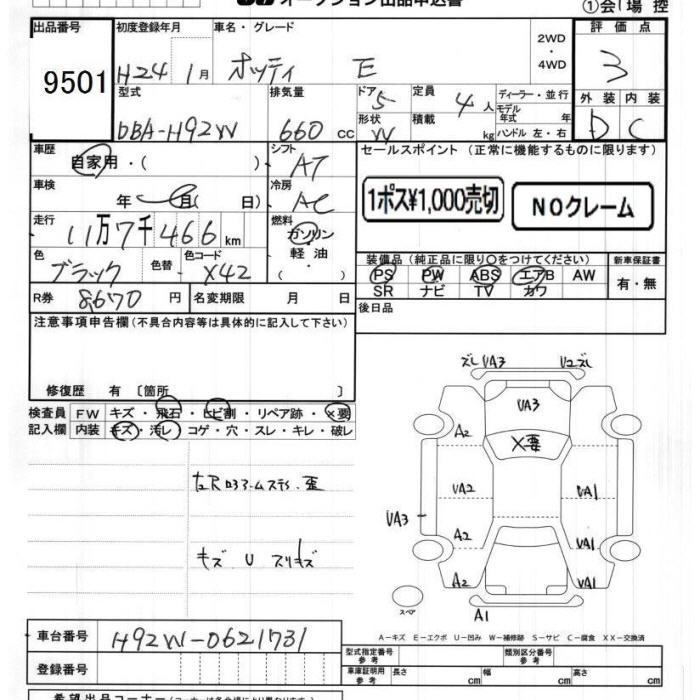 オークション出品申込書
①会場控
出品番号
9501
初度登録年月
H24 1月
車名・グレード
オッティ E
2WD・4WD
評価点
3
型式
DBA-H92W
排気量
660 cc
ドア 5
形状 W
定員 4人
積載 kg
ディーラー・並行
モデル年式 年
ハンドル 左・右
外装 内装
D C
車歴
自家用・( )
シフト
AT
セールスポイント(正常に機能するものに限ります)
車検
年 月( 日)
冷房
AC
1ポス¥1,000売切
NOクレーム
走行
11万7千466 km
燃料
ガソリン
軽油
( )
色
ブラック
色替
色コード
X42
装備品(純正品に限り○をつけてください)
新車保証書
PS PW ABS エアB AW
SR ナビ TV カワ
有・無
R券 8670円
名変期限 月 日
後日品
注意事項申告欄(不具合内容等は具体的に記入して下さい)
修復歴 有 〔箇所 〕
検査員
記入欄
FW キズ・飛石・ヒビ割・リペア跡・×要
内装 キズ・汚レ・コゲ・穴・スレ・キレ・破レ
キズ U スリキズ
ズレ UA3
U2 ズレ
UA3
A2
×要
UA2
UA1
UA3
A2
UA1
A2
UA1
スペア
A1
A-キズ E-エクボ U-凹み W-補修跡 S-サビ C-腐食 XX-交換済
車台番号
H92W-0621731
登録番号
型式指定番号
参考
類別区分番号
参考
車庫証明用
参考
長さ 幅 高さ
希望出品コーナー